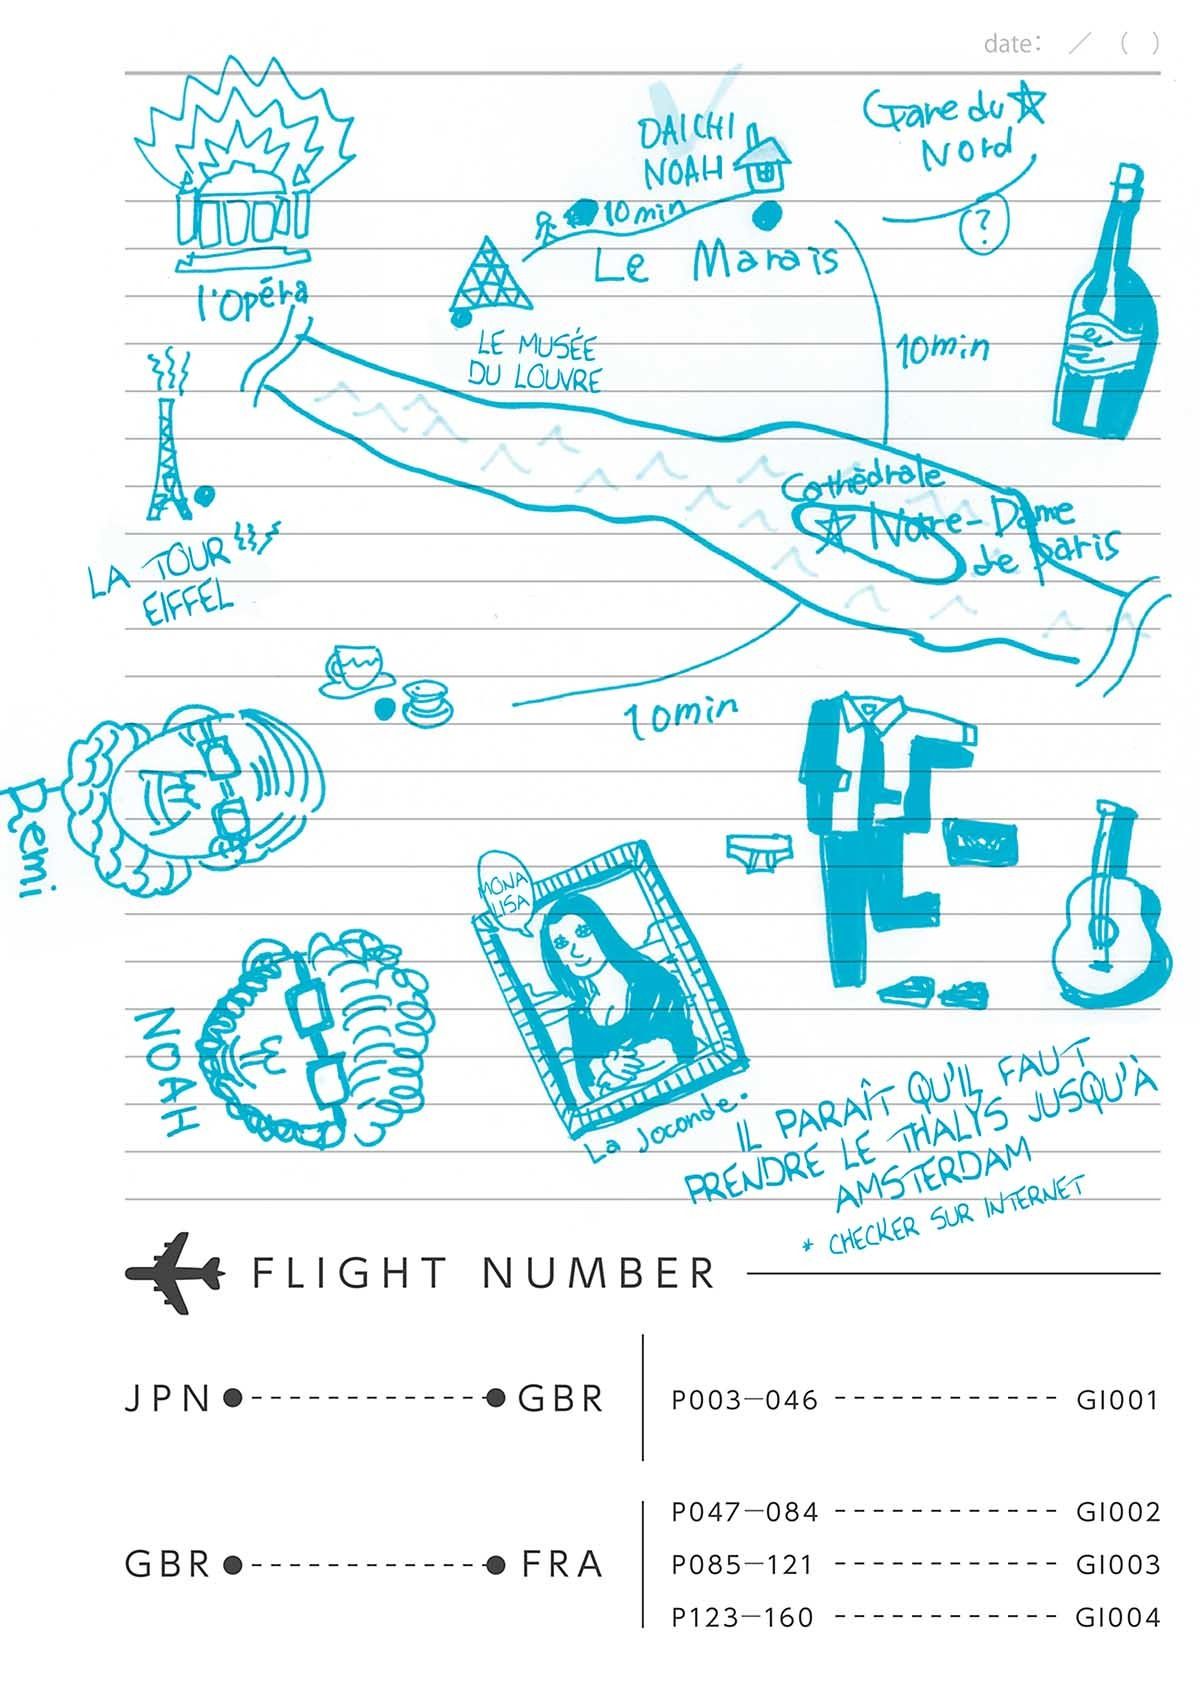 date: ／ ( )
Gare du
Nord
DAICHI
NOAH
10min
?
Le Marais
l'Opéra
LE MUSÉE
DU LOUVRE
10min
Cathèdrale
Notre-Dame
de paris
LA TOUR
EIFFEL
10min
Remi
MONA
LISA
NOAH
La Joconde.
IL PARAÎT QU'IL FAUT
PRENDRE LE THALYS JUSQU'À
AMSTERDAM
* CHECKER SUR INTERNET
FLIGHT NUMBER
JPN GBR P003—046 GI001
P047—084 GI002
GBR FRA P085—121 GI003
P123—160 GI004